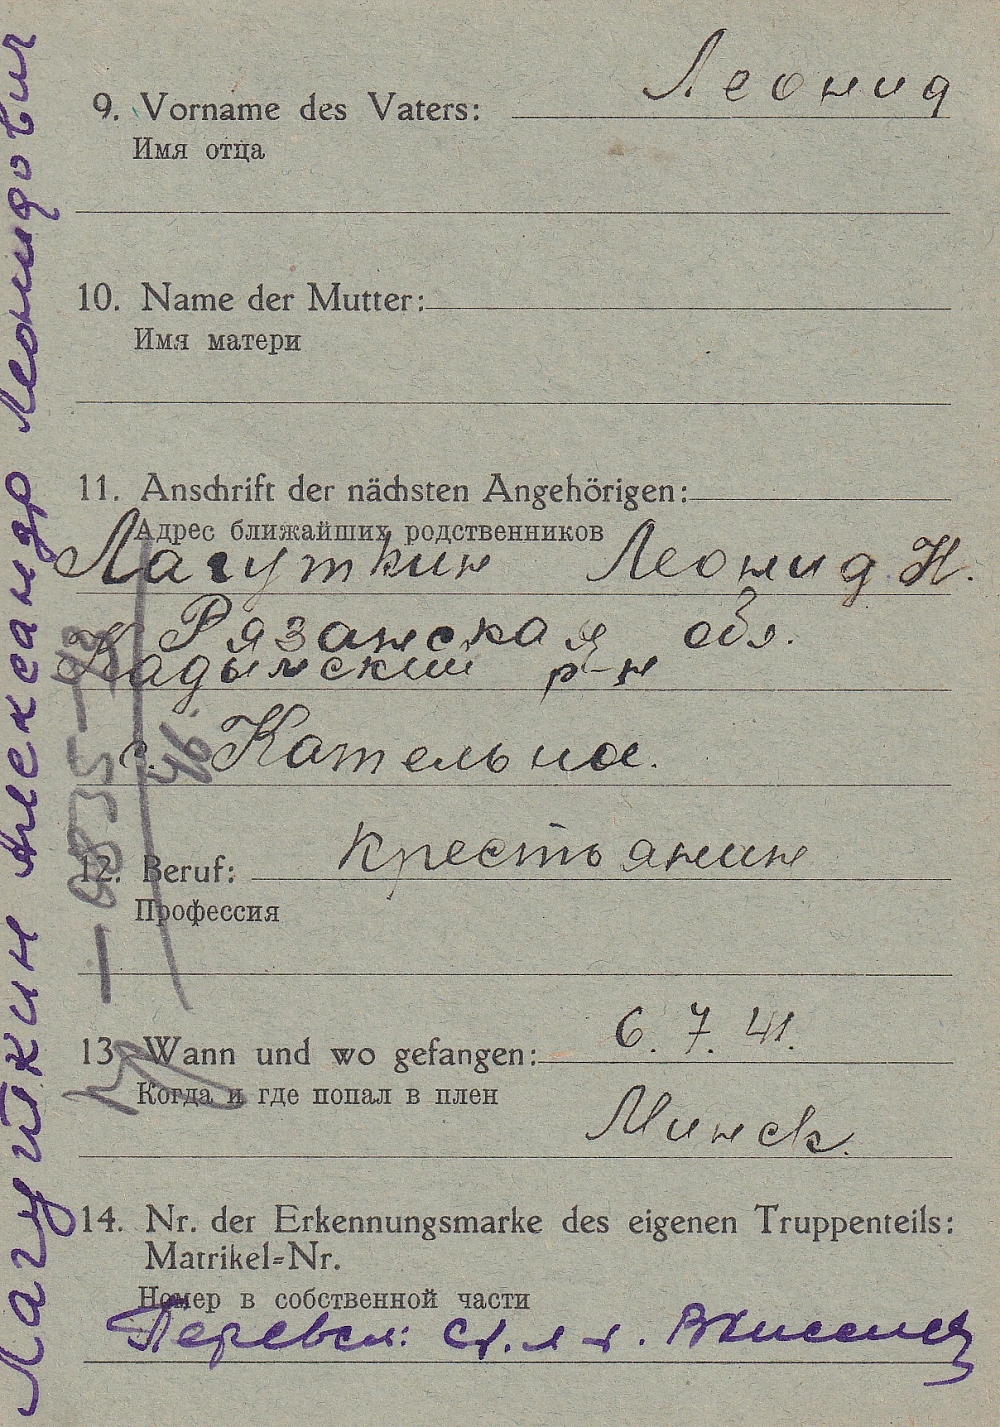 9. Vorname des Vaters: Леонид
Имя отца
10. Name der Mutter:
Имя матери
11. Anschrift der nächsten Angehörigen:
Адрес ближайших родственников
Лагуткин Леонид Н.
Рязанская обл.
Кадымский р-н
с. Кательна.
12. Beruf: крестьянин
Профессия
13. Wann und wo gefangen: 6. 7. 41.
Когда и где попал в плен
Минск.
14. Nr. der Erkennungsmarke des eigenen Truppenteils:
Matrikel-Nr.
Номер в собственной части
Перевел: ст. л-т.
Лагуткин Александр Леонидович